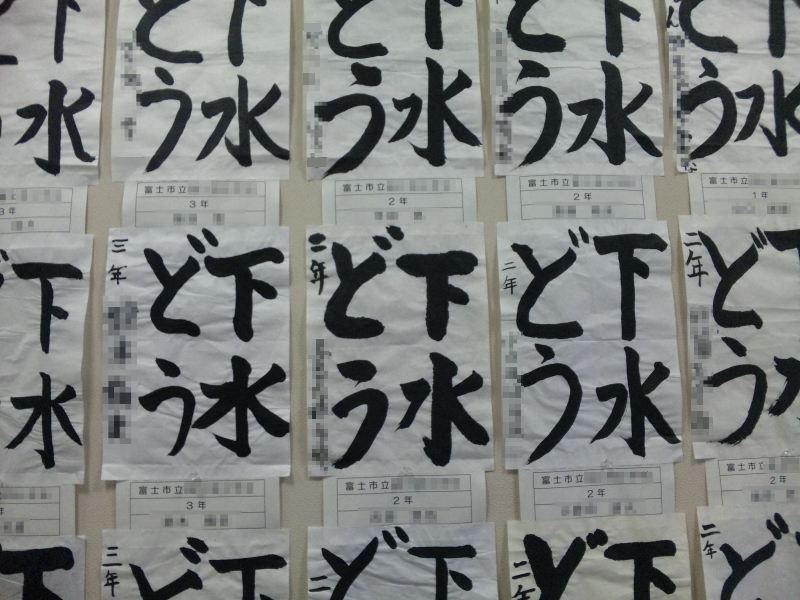 下水
下水
どう
下水
どう
下水
どう
下水
どう
3年
富士市立
3年
富士市立
2年
富士市立
2年
富士市立
1年
下水
下水
どう
三年
下水
どう
二年
下水
どう
二年
どう
二年
富士市立
3年
富士市立
2年
富士市立
2年
富士市立
2年
下
下
ど
三年
下
ど
二
下
ど
二年
ど
二年